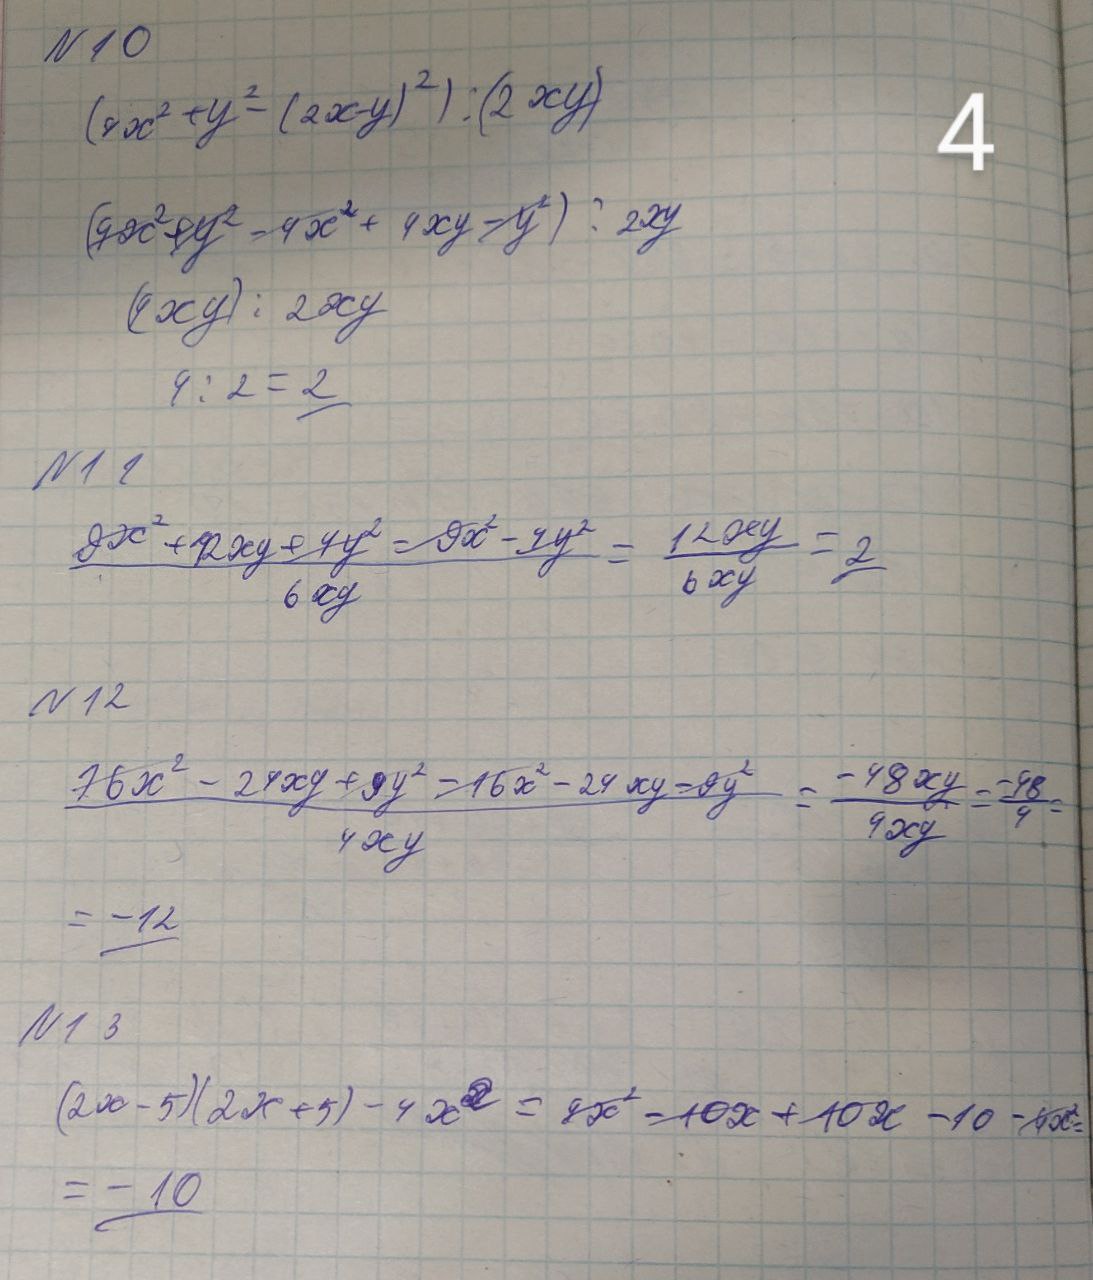 N10
4
(4x² + y² - (2x-y)²) : (2xy)
(4x² + y² - 4x² + 4xy - y²) : 2xy
(4xy) : 2xy
4 : 2 = 2
N11
9x² + 12xy + 4y² - 9x² - 4y² / 6xy = 12xy / 6xy = 2
N12
16x² - 24xy + 9y² - 16x² - 24xy - 9y² / 4xy = -48xy / 4xy = -48 / 4 =
= -12
N13
(2x - 5)(2x + 5) - 4x² = 4x² - 10x + 10x - 10 - 4x² =
= - 10